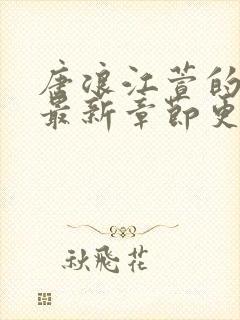 唐浪江萱的
最新章节更
秋飛花